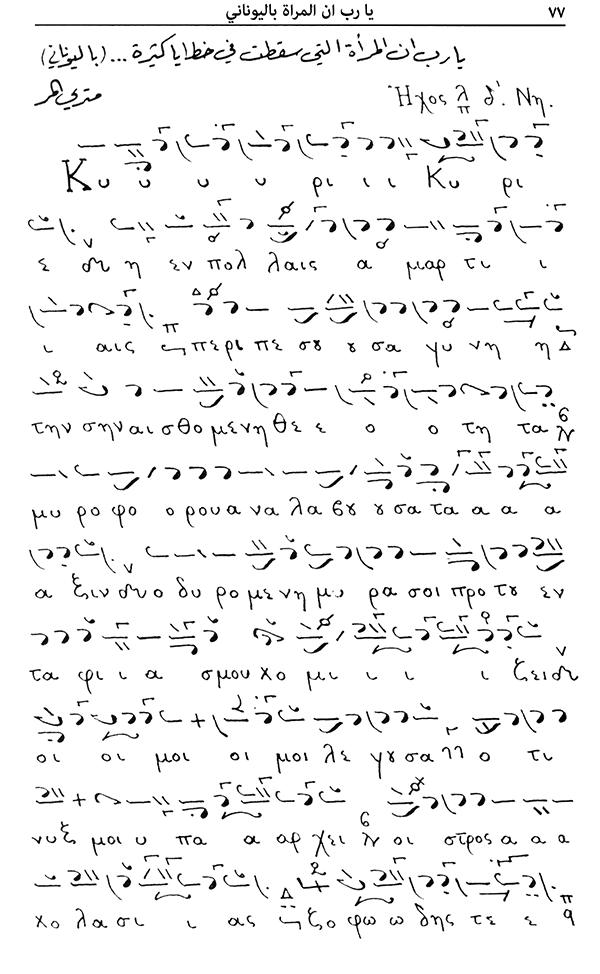 ٧٧ يا رب ان المراة باليوناني
يارب ان المرأة التي سقطت في خطايا كثيرة ... (باليوناني)
متري المر Ἦχος λ π δ'. Νη.
Κυ υ υ υ ρι ι ι Κυ ρι
ε συ η εν πολ λαις α μαρ τι ι
ι αις περι πε σου ου σα γυ νη η Δ
την σην αι σθο με νη θε ε ο ο τη τα
μυ ρο φο ο ρου α να λα βου ου σα τα α α α
α ξιν συ ο δυ ρο με νη μυ ρα σοι προ του εν
τα φι ι α σμου κο μι ι ι ι ζει
οι οι μοι οι μοι λε γου σα ο τι
νυξ μοι υ πα α αρ χει οι στρος α α α
χο λα σι ι ας ζο φω ω δης τε ε